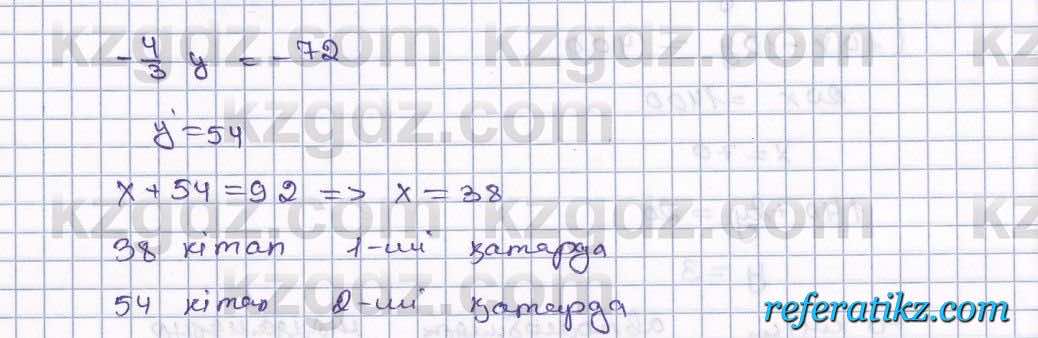 kzgdz.com kzgdz.com kz
-4/3 y = -72
kzgdz.com kzgdz.com
y = 54
x + 54 = 92 => x = 38
kzgdz.com kzgdz.com kz
38 кітап 1-ші қатарда
kzgdz.com kzgdz.com
54 кітап 2-ші қатарда
referatikz.com